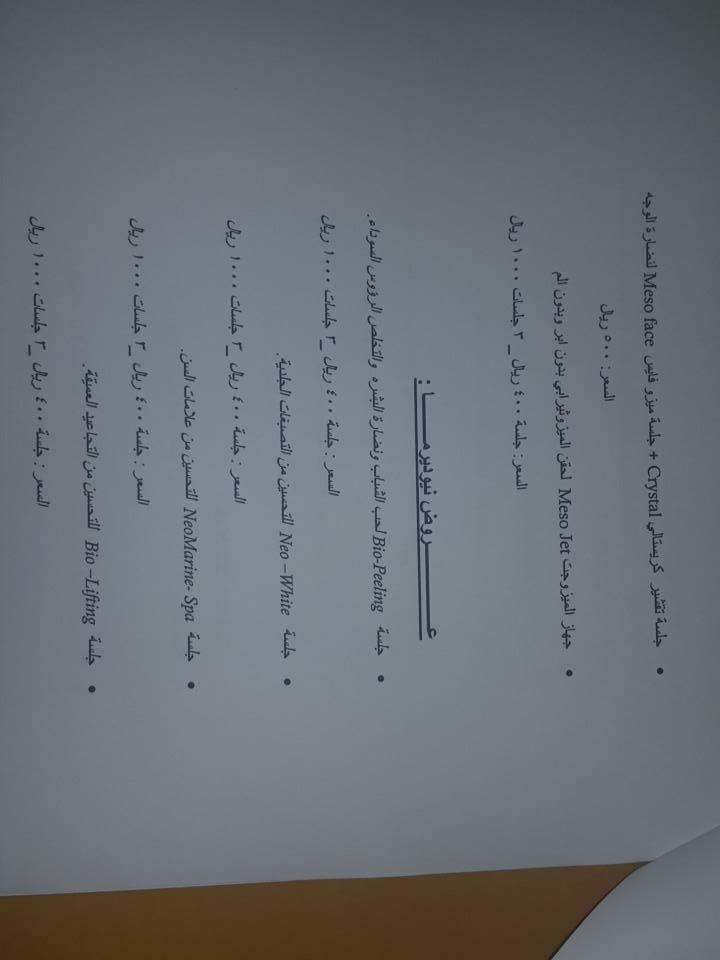 • جلسة تقشير كريستالي Crystal + جلسة ميزو فايس Meso face لنضارة الوجه
السعر: ٥٠٠ ريال
• جهاز الميزوجت Meso Jet لحقن الميزوثيرابي بدون ابر وبدون الم
السعر: جلسة ٤٠٠ ريال _ ٣ جلسات ١٠٠٠ ريال
عـــــروض نيوديرمـــا :
• جلسة Bio-Peeling لحب الشباب ونضارة البشره والتخلص الرؤوس السوداء.
السعر : جلسة ٤٠٠ ريال _ ٣ جلسات ١٠٠٠ ريال
• جلسة Neo –White للتحسين من التصبغات الجلدية.
السعر : جلسة ٤٠٠ ريال _ ٣ جلسات ١٠٠٠ ريال
• جلسة NeoMarine- Spa للتحسين من علامات السن.
السعر : جلسة ٤٠٠ ريال _ ٣ جلسات ١٠٠٠ ريال
• جلسة Bio –Lifting للتحسين من التجاعيد العميقة.
السعر : جلسة ٤٠٠ ريال _ ٣ جلسات ١٠٠٠ ريال